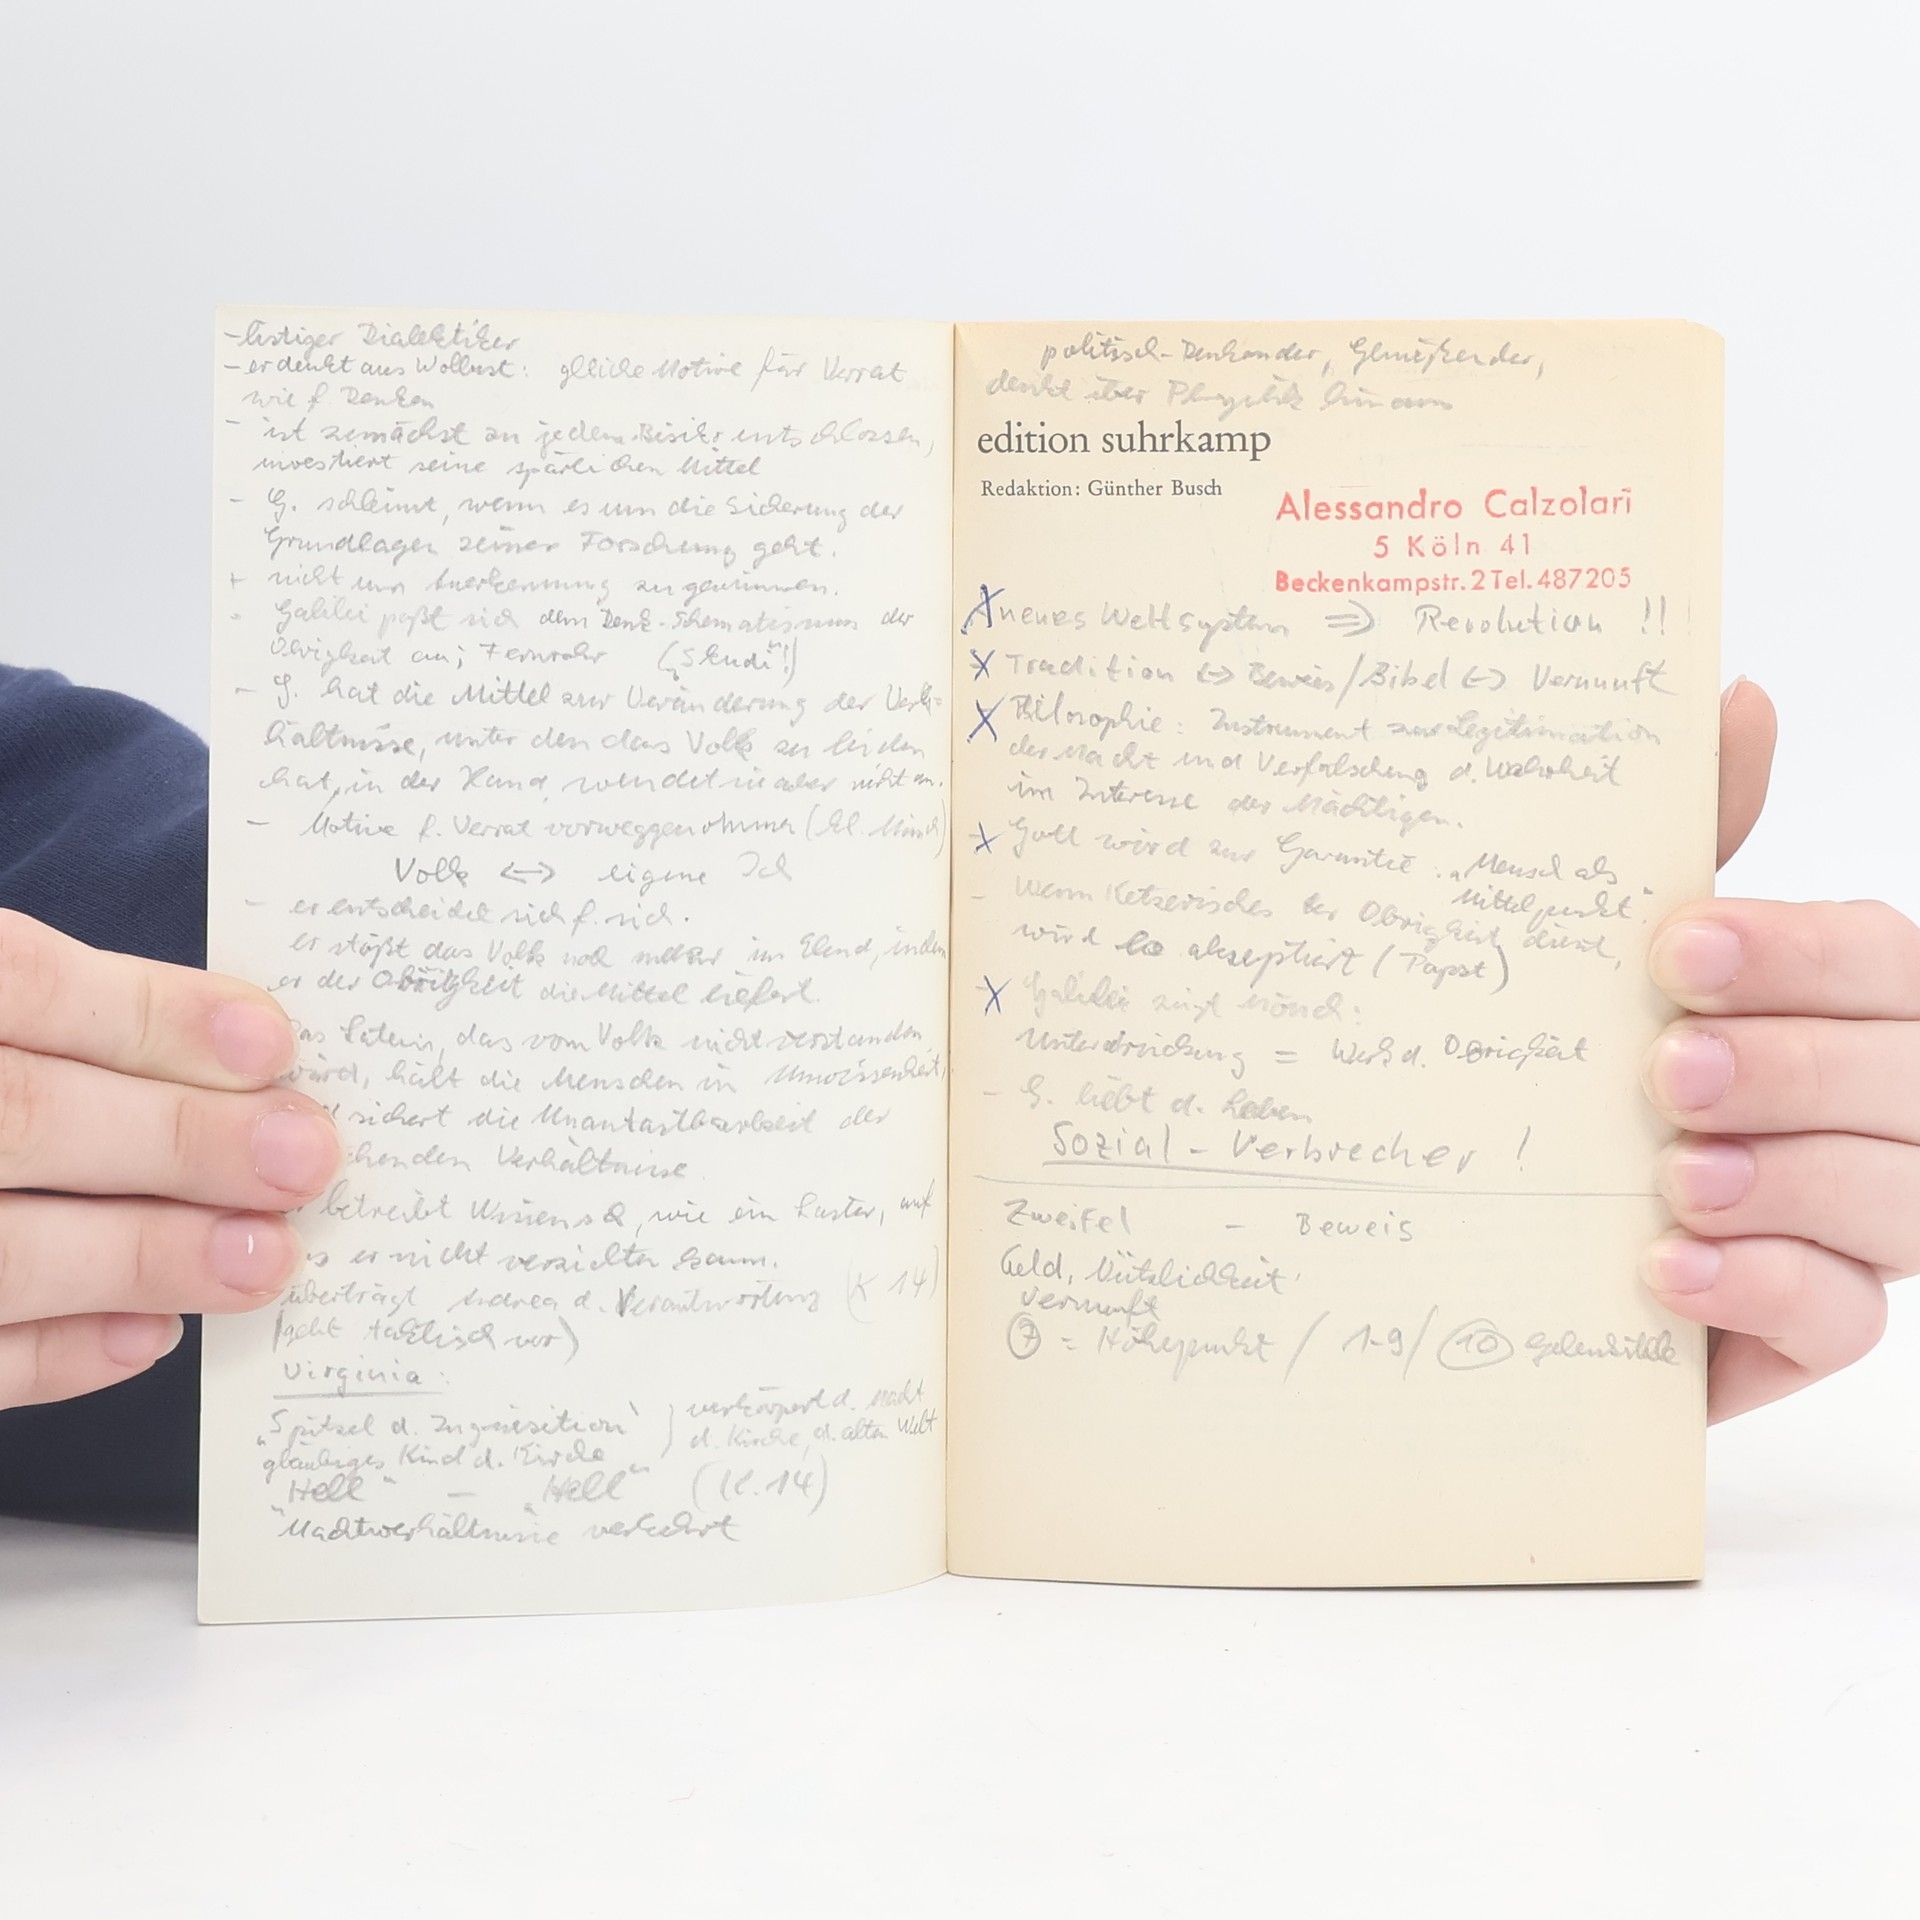 - listiger Dialektiker
- er denkt aus Wollust: gleiche Motive für Verrat
wie f. Denken
- ist zunächst zu jedem Risiko entschlossen,
investiert seine spärlichen Mittel
- G. schleimt, wenn es um die Sicherung der
Grundlagen seiner Forschung geht.
+ nicht um Anerkennung zu gewinnen.
- Galilei paßt sich dem Denk-Schematismus der
Obrigkeit an; Fernrohr
- G. hat die Mittel zur Veränderung der Verh-
hältnisse, unter den das Volk zu leiden
hat, in der Hand, wendet sie aber nicht an.
- Motive f. Verrat vorweggenommen (kl. Mönch)
Volk <-> eigene Ich
- er entscheidet sich f. sich.
er stößt das Volk noch mehr ins Elend, indem
er der Obrigkeit die Mittel liefert.
Latein, das vom Volk nicht verstanden
wird, hält die Menschen in Unwissenheit,
sichert die Unantastbarkeit der
henden Verhältnisse
betreibt Wissensch, wie ein Laster, auf
er nicht verzichten kann.
überträgt Andrea d. Verantwortung (K 14)
(geht taktisch vor)
Virginia:
"Spitzel d. Inquisition" } verkörpert d. Macht
gläubiges Kind d. Kirche d. Kirche, d. alten Welt
"Hell" - "Hell" (K. 14)
"Machtverhältnisse verkehrt
politisch-Denkender, Genießender,
denkt über Physik hinaus
edition suhrkamp
Redaktion: Günther Busch
Alessandro Calzolari
5 Köln 41
Beckenkampstr. 2 Tel. 487205
X neues Weltsystem => Revolution !!
X Tradition <-> Beweis / Bibel <-> Vernunft
X Philosophie: Instrument zur Legitimation
der Macht und Verfälschung d. Wahrheit
im Interesse der Mächtigen.
X Gott wird zur Garantie: "Mensch als
Mittelpunkt".
- Wenn Ketzerisches der Obrigkeit dient,
wird es akzeptiert (Papst)
X Galilei zeigt Mönch:
Unterdrückung = Werk d. Obrigkeit
- G. liebt d. Leben
Sozial - Verbrecher !
Zweifel - Beweis
Geld, Nützlichkeit
Vernunft
7 = Höhepunkt / 1-9 / 10 Gelenkstelle